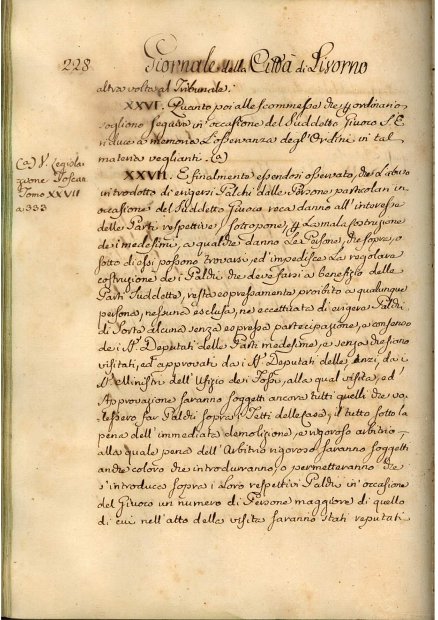 228.
Giornale della Città di Livorno
altra volta al Tribunale.
XXVI. Quanto poi alle scommesse che p. ordinario
sogliono seguire in occasione del Suddetto Giuoco S. E.
riduce a memoria l'osservanza degl'Ordini in tal
materia veglianti. (a)
(a) V. Legisla-
zione Toscan.
Tomo XXVII
a. 333
XXVII. E finalmente essendosi osservato, che l'abuso
introdotto di erigersi Palchi dalle Persone particolari in
occasione del Suddetto Giuoco reca danno all'interesse
delle Parti respettive, e sottopone, p. la mala costruzione
dei medesimi, a qualche danno le Persone, che sopra, o
sotto di essi possono trovarsi, ed impedisce la regolare
costruzione de i Palchi, che deve farsi a benefizio delle
Parti Suddette, resta espressamente proibito a qualunque
persona, nessuna esclusa, ne eccettuata di erigere Palchi
di sorta alcuna senza espressa partecipazione, e consenso
de i SS. Deputati delle Parti medesime, e senza che siano
visitati, ed approvati da i SS. Deputati delle, anzi, da i
SS. Ministri dell'Ufizio dei Fossi, alla qual visita, ed
Approvazione saranno soggetti ancora tutti quelli che vo-
lessero far Palchi sopra i Tetti delle Case; il tutto sotto la
pena dell'immediata demolizione, e rigoroso arbitrio,
alla quale pena dell'Arbitrio rigoroso saranno soggetti
anche coloro che introdurranno, o permetteranno che
s'introduca sopra i loro respettivi Palchi in occasione
del Giuoco un numero di Persone maggiore di quello
di cui nell'atto della visita saranno stati reputati